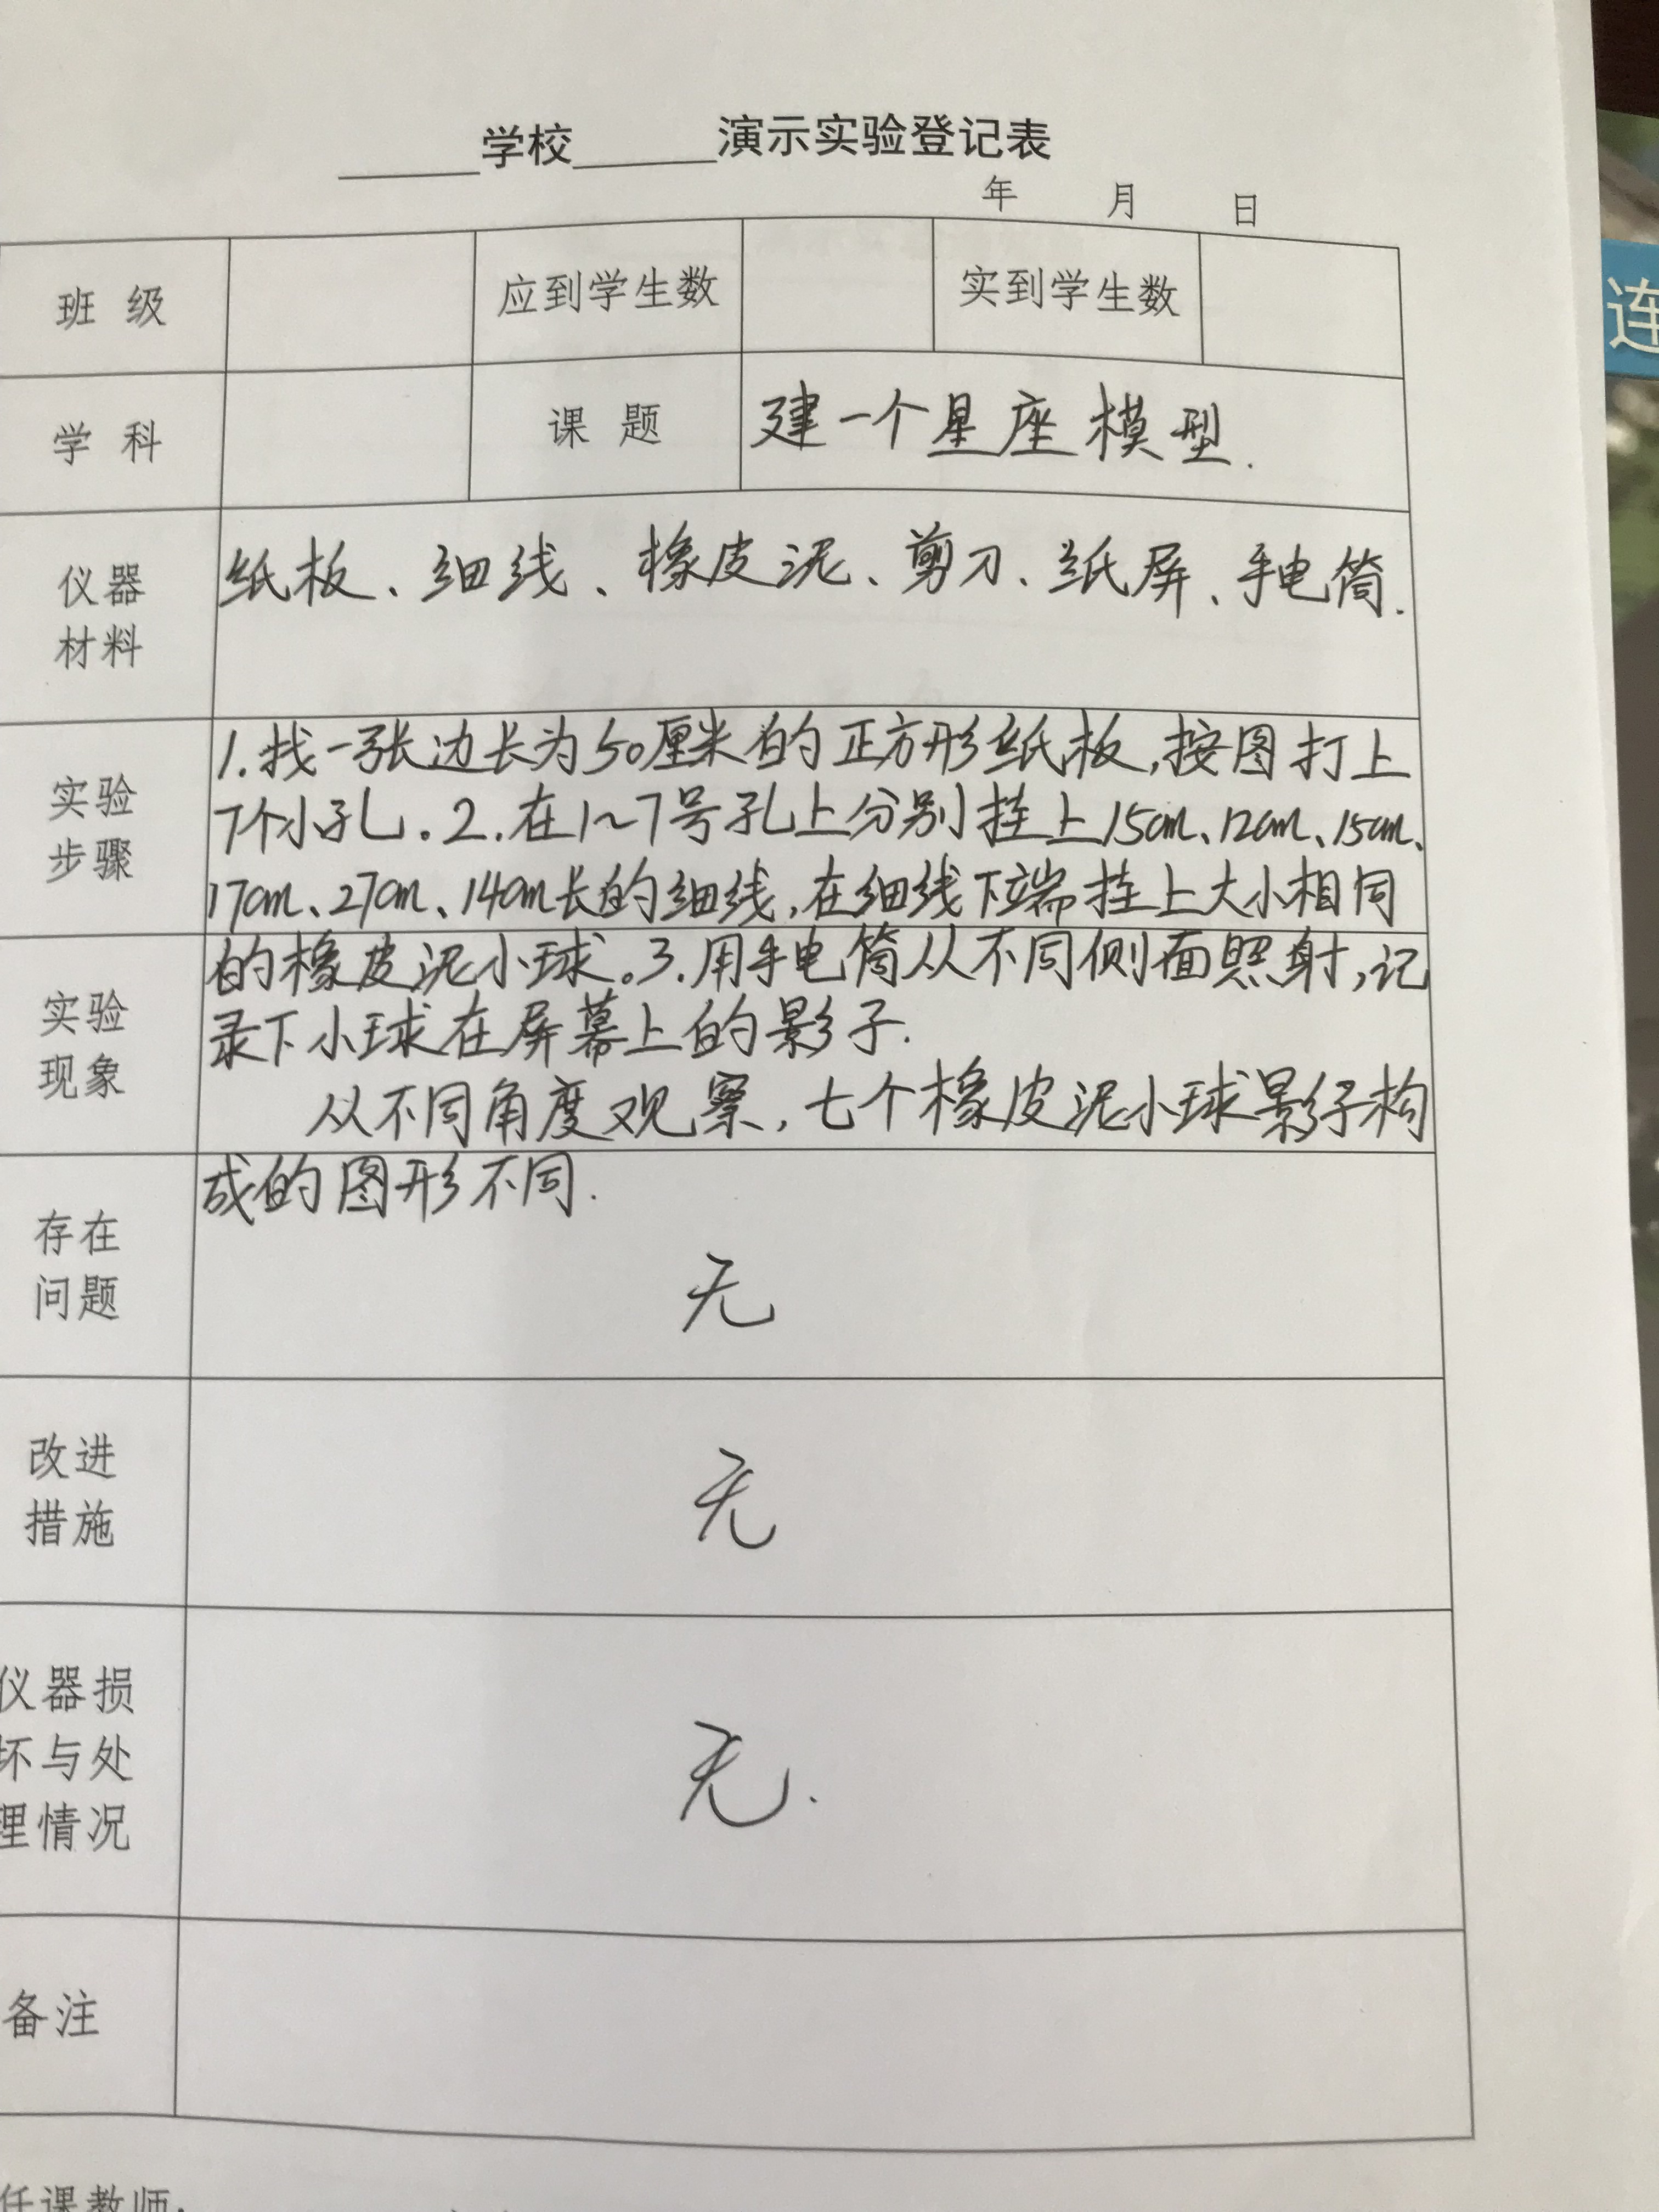 学校 演示实验登记表
年 月 日
班 级 应到学生数 实到学生数
学 科 课 题 建一个星座模型.
仪器
材料
纸板、细线、橡皮泥、剪刀、纸屏、手电筒.
实验
步骤
1.找一张边长为50厘米的正方形纸板,按图打上
7个小孔.2.在1~7号孔上分别挂上15cm、12cm、15cm、
17cm、27cm、14cm长的细线,在细线下端挂上大小相同
实验
现象
的橡皮泥小球。3.用手电筒从不同侧面照射,记
录下小球在屏幕上的影子.
从不同角度观察,七个橡皮泥小球影子构
存在
问题
成的图形不同.
无
改进
措施
无
仪器损
坏与处
理情况
无.
备注
任课教师:
连